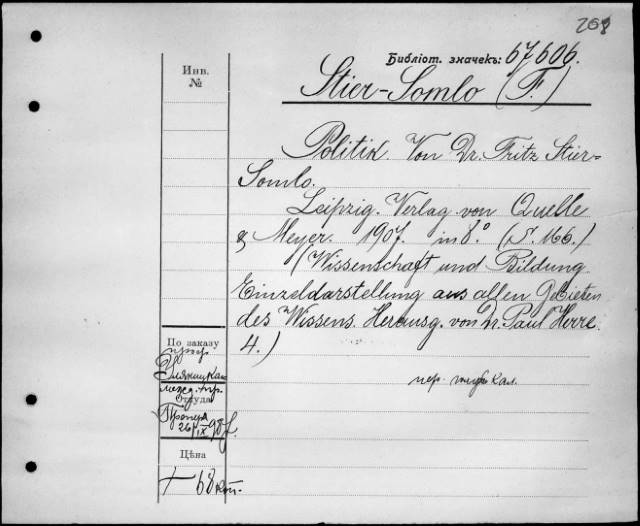 268
Библіот. значекъ: 67606.
Инв.
№
Stier-Somlo (F.)
Politik. Von Dr. Fritz Stier-
Somlo.
Leipzig. Verlag von Quelle
& Meyer. 1907. in 8.° (S. 166.)
(Wissenschaft und Bildung
Einzeldarstellung aus allen Gebieten
des Wissens. Herausg. von Dr. Paul Herre.
4.)
По заказу
проф.
межд. пр.
Откуда
26/IX 907.
Цѣна
68 коп.